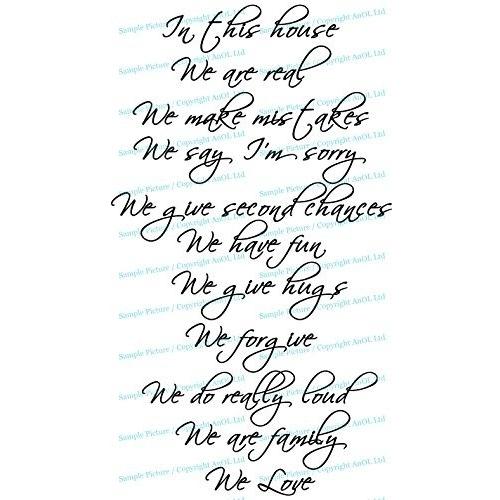 In this house
We are real
We make mistakes
We say I'm sorry
We give second chances
We have fun
We give hugs
We forgive
We do really loud
We are family
We Love
Sample Picture / Copyright AnOL Ltd